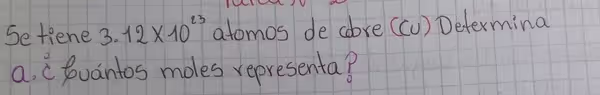 Se tiene 3.12 x 10²³ atomos de cobre (Cu) Determina
a. ¿Cuántos moles representa?